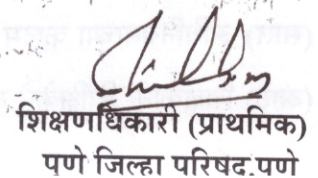 शिक्षणाधिकारी (प्राथमिक)
पुणे जिल्हा परिषद,पुणे